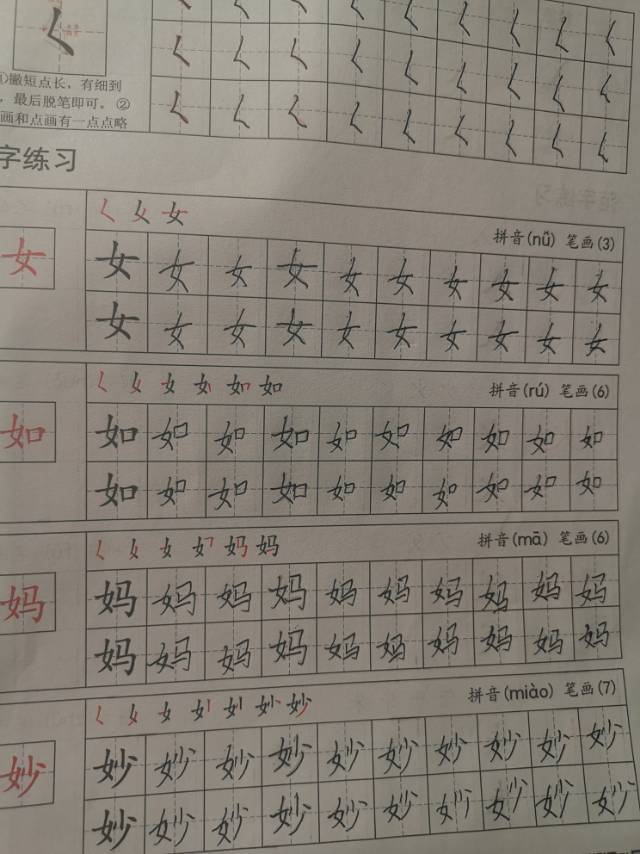 ①撇短点长，有细到
，最后脱笔即可。②
画和点画有一点点略
字练习
拼音(nǚ) 笔画(3)
女 女 女 女 女 女 女 女 女 女 女
女 女 女 女 女 女 女 女 女 女
拼音(rú) 笔画(6)
如 如 如 如 如 如 如 如 如 如 如
如 如 如 如 如 如 如 如 如 如
拼音(mā) 笔画(6)
妈 妈 妈 妈 妈 妈 妈 妈 妈 妈 妈
妈 妈 妈 妈 妈 妈 妈 妈 妈 妈
拼音(miào) 笔画(7)
妙 妙 妙 妙 妙 妙 妙 妙 妙 妙 妙
妙 妙 妙 妙 妙 妙 妙 妙 妙 妙